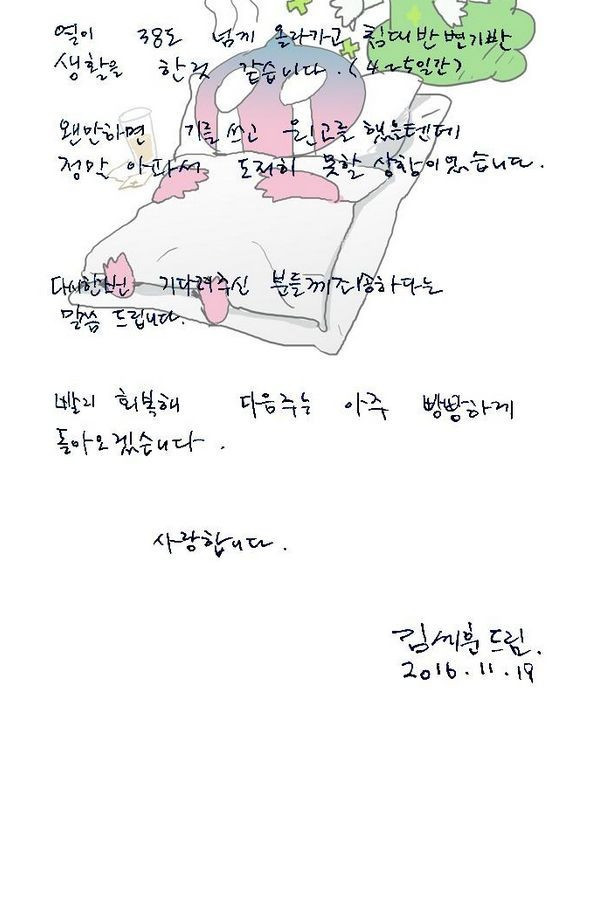 열이 38도 넘게 올라가고 침대반 변기반
생활을 한것 같습니다. (4~5일간)
왠만하면 기를 쓰고 원고를 했을텐데
정말 아파서 도저히 못할 상황이었습니다.
다시한번 기다려주신 분들께 죄송하다는
말씀 드립니다.
빨리 회복해 다음주는 아주 빵빵하게
돌아오겠습니다.
사랑합니다.
김세훈 드림.
2016.11.19